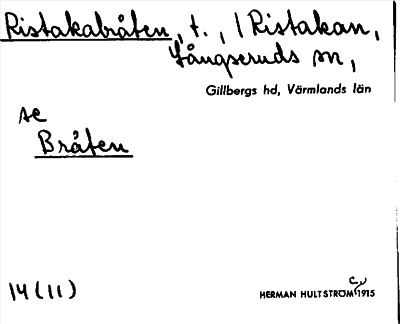 Ristakabråten, t., / Ristakan,
Långseruds sn,
Gillbergs hd, Värmlands län
se
Bråten
14 (11)
HERMAN HULTSTRÖM 1915